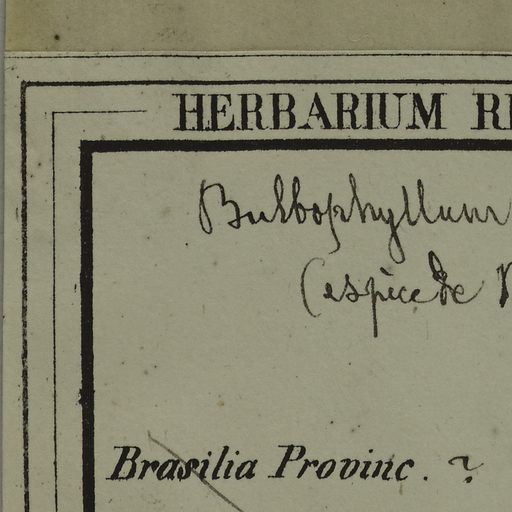 HERBARIUM
Bulbophyllum
(espèce de
Brasilia Provinc. ?